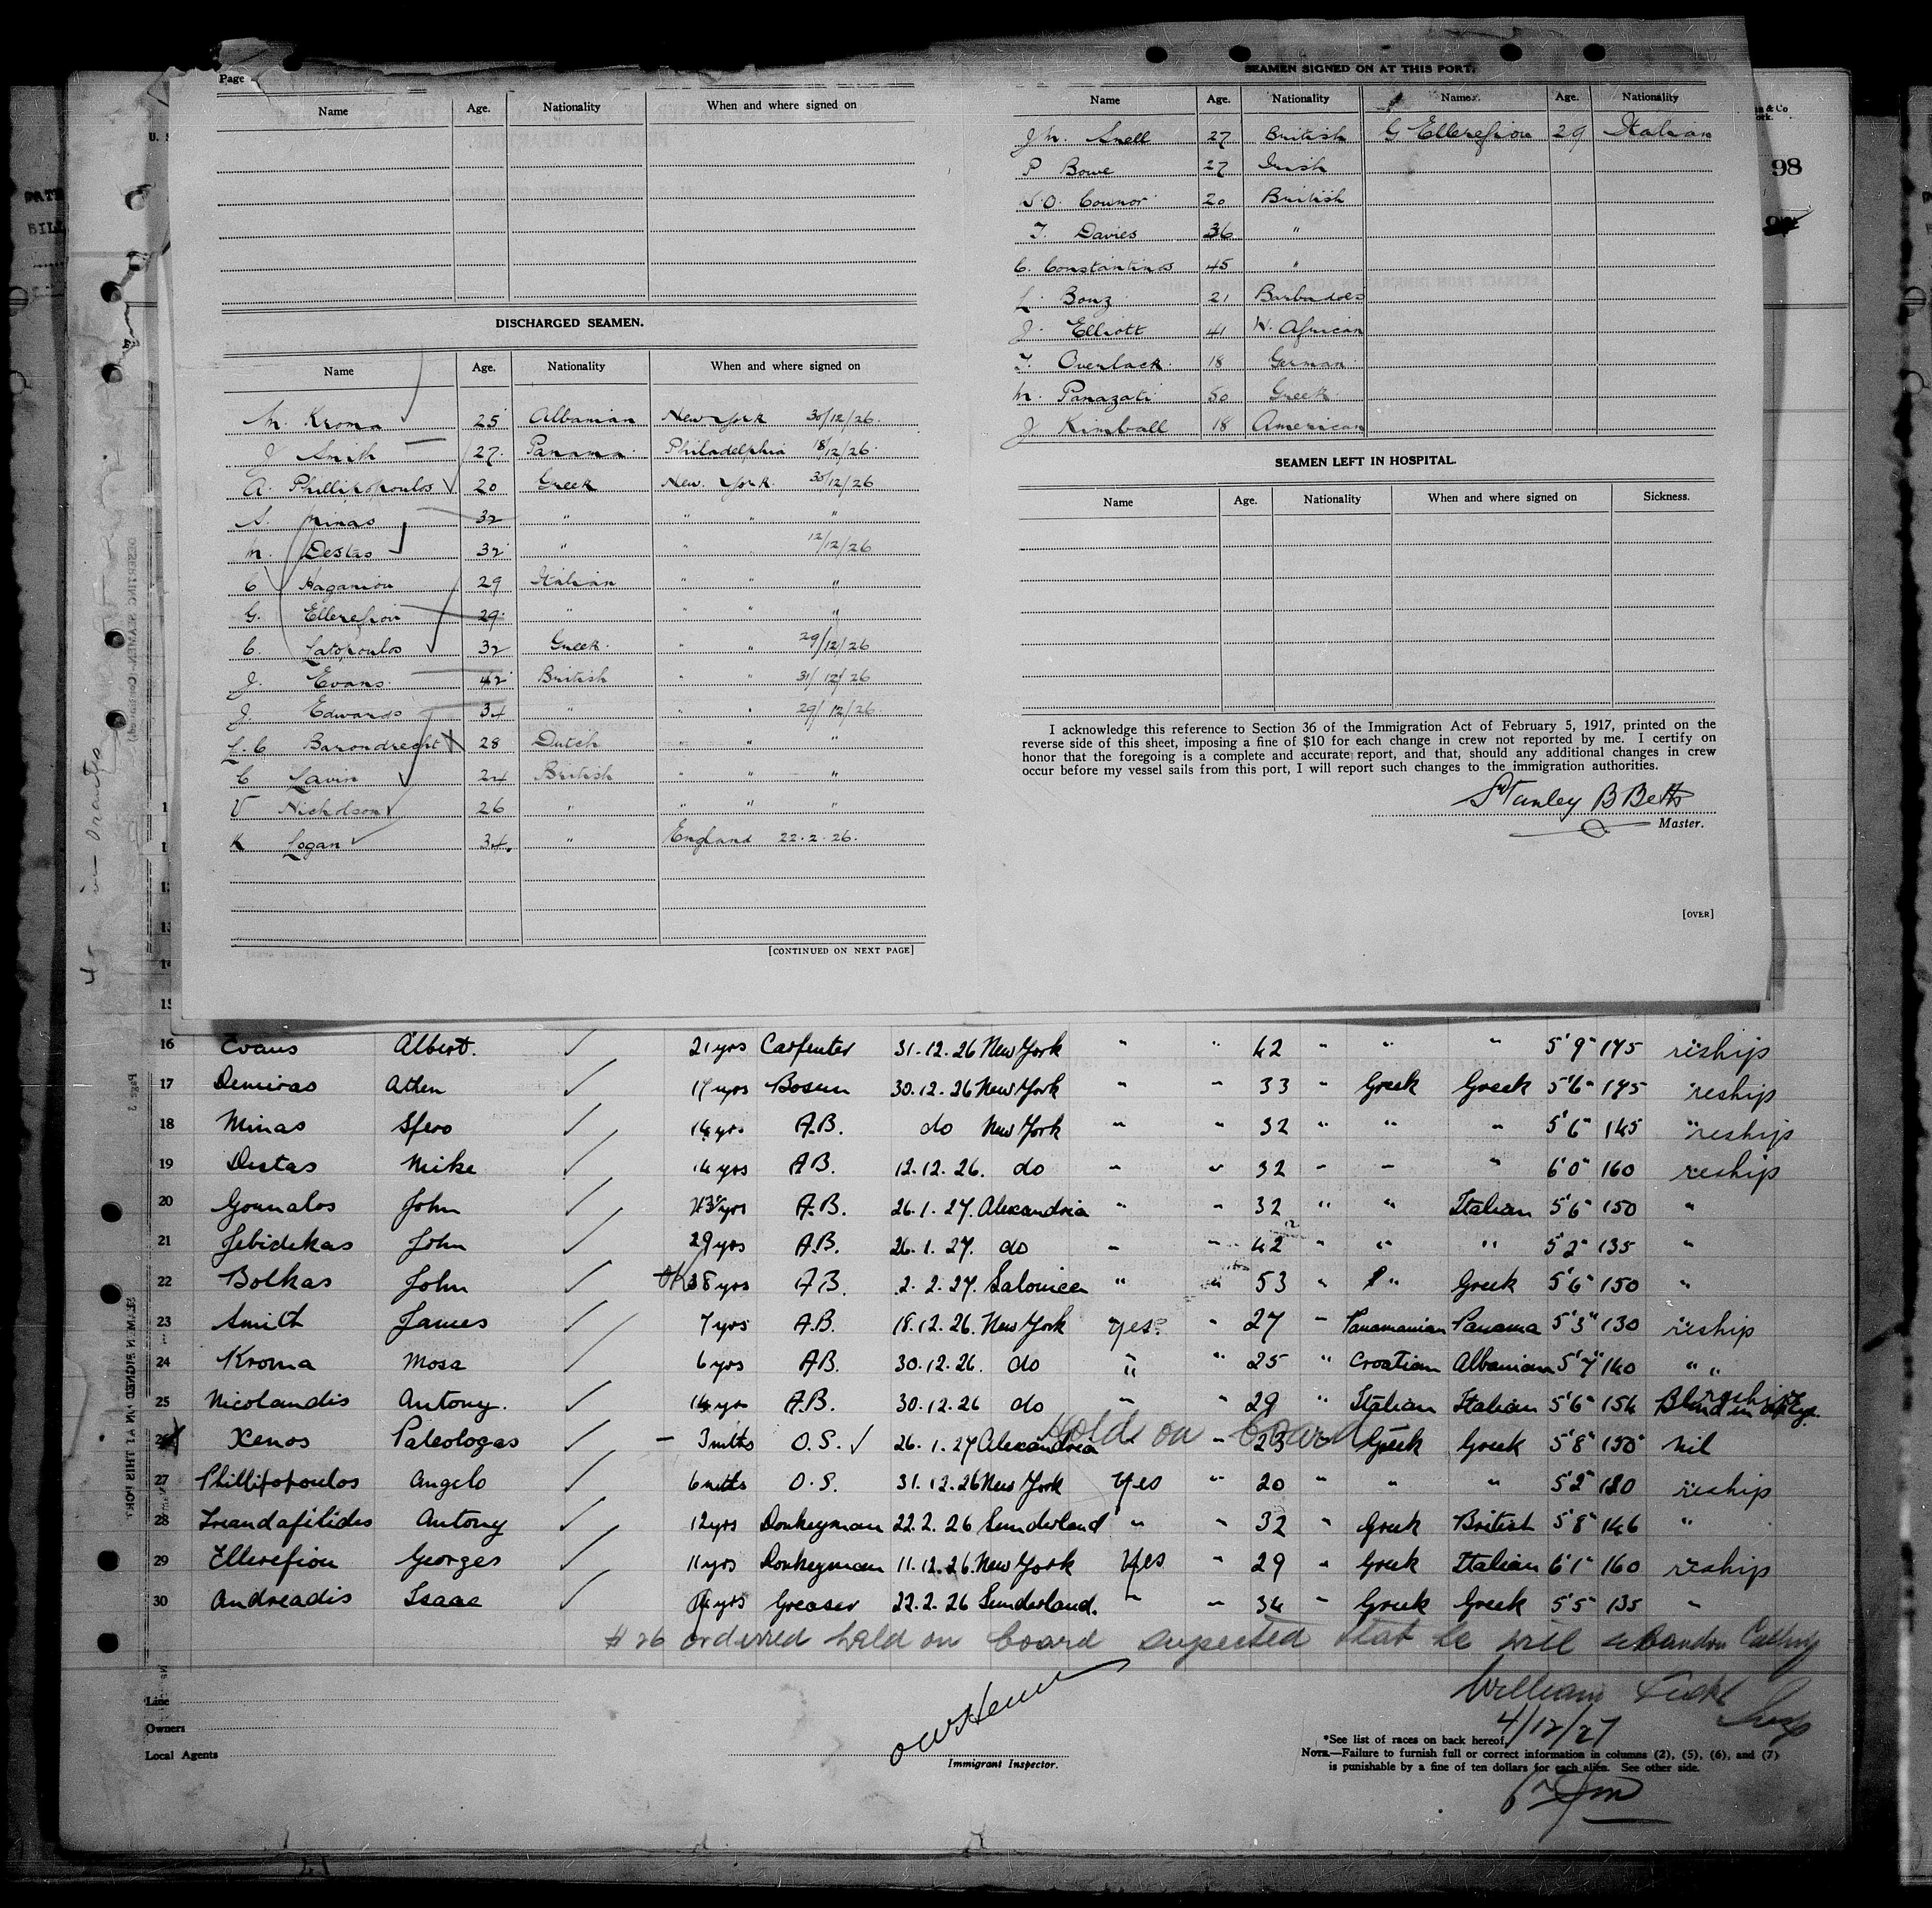 Page
Name Age. Nationality When and where signed on
DISCHARGED SEAMEN.
Name Age. Nationality When and where signed on
M. Kroma 25 Albanian New York 30/12/26.
J Smith 27. Panama Philadelphia 18/12/26.
A. Phillipopoulos 20 Greek New York. 30/12/26
S. Minas 32 " " " "
M. Destas 32 " " 12/12/26
C Haganion 29 Italian " " "
G. Ellerefion 29 " " " "
C. Latopoulos 32 Greek. " " 29/12/26
J. Evans. 42 British " " 31/12/26
J. Edwards 34 " " " 29/12/26.
L.C Barondrecht 28 Dutch " " "
C Lavin 24 British " " "
V Nicholson 26 " " " "
K Logan 34. " England 22.2.26.
[CONTINUED ON NEXT PAGE]
SEAMEN SIGNED ON AT THIS PORT.
Name Age. Nationality Name. Age. Nationality
J M. Snell 27 British G Ellerefion 29 Italian
P Bowe 27 Irish
J.O. Connor 20 British
T. Davies 36 "
C. Constantinos 45 "
L. Bonz 21 Barbadoes
J. Elliott 41 W. African
T. Overlack 18 German
M. Panazati 50 Greek
J. Kimball 18 American
SEAMEN LEFT IN HOSPITAL.
Name Age. Nationality When and where signed on Sickness.
I acknowledge this reference to Section 36 of the Immigration Act of February 5, 1917, printed on the
reverse side of this sheet, imposing a fine of $10 for each change in crew not reported by me. I certify on
honor that the foregoing is a complete and accurate report, and that, should any additional changes in crew
occur before my vessel sails from this port, I will report such changes to the immigration authorities.
Stanley B Betts
Master.
[OVER]
98
16 Evans Albert. 21 yrs Carpenter 31.12.26 New York " " 42 " " " 5'9" 175 reship
17 Demiras Athen 17 yrs Bosun 30.12.26 New York " " 33 " Greek Greek 5'6" 175 " reship
18 Minas Spero 14 yrs A.B. do New York " " 32 " " " 5'6" 145 " reship
19 Destas Mike 14 yrs A.B. 12.12.26. do " " 32 " " " 6'0" 160 reship
20 Gounalos John yrs A.B. 26.1.27. Alexandria " " 32 " " Italian 5'6" 150 "
21 Jebidekas John 29 yrs A.B. 26.1.27. do " " 42 " " " 5'2" 135 "
22 Bolkas John OK 38 yrs A.B. 2.2.27. Salonica " " 53 " " Greek 5'6" 150 "
23 Smith James 7 yrs A.B. 18.12.26. New York Yes? " 27 " Panamanian Panama 5'3" 130 reship
24 Kroma Mosa 6 yrs A.B. 30.12.26. do " " 25 " Croatian Albanian 5'7" 140 " "
25 Nicolandis Antony. 14 yrs A.B. 30.12.26 do " " 29 " Italian Italian 5'6" 154 reship Blind in Eye.
26 Xenos Paleologas 3 mths O.S. 26.1.27 Alexandria Hold on board " 23 " Greek Greek 5'8" 150 nil
27 Phillipopoulos Angelo 6 mths O.S. 31.12.26 New York Yes " 20 " " " 5'2" 120 reship
28 Treandafilides Antony 12 yrs Donkeyman 22.2.26 Sunderland " " 32 " Greek British 5'8" 146 "
29 Ellerefion Georges 11 yrs Donkeyman 11.12.26. New York Yes " 29 " Greek Italian 6'1" 160 reship
30 Andreadis Isaac yrs Greaser 22.2.26 Sunderland. " " 34 " Greek Greek 5'5" 135 "
# 26 ordered held on board suspected that he will abandon Calling
William Insp
4/12/27
Line
Owners
Local Agents
Immigrant Inspector.
*See list of races on back hereof.
NOTE.—Failure to furnish full or correct information in columns (2), (5), (6), and (7)
is punishable by a fine of ten dollars for each alien. See other side.